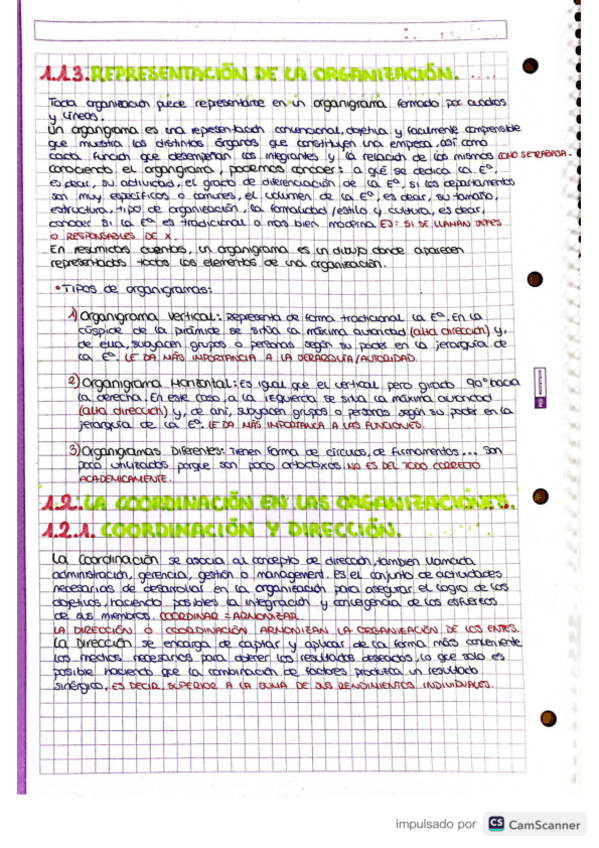 1.1.3. REPRESENTACIÓN DE LA ORGANIZACIÓN.
Toda organización puede representarse en un organigrama formado por cuadros
y líneas.
Un organigrama es una representación convencional, objetiva y facilmente comprensible
que muestra los distintos órganos que constituyen una empresa, así como
cada función que desempeñan los integrantes y la relación de los mismos COMO SE TRABAJA.
Conociendo el organigrama, podemos conocer: a qué se dedica la Eª,
es decir, su actividad, el grado de diferenciación de la Eª, si los departamentos
son muy específicos o comunes, el volumen de la Eª, es decir, su tamaño,
estructura, tipo de organización, la formalidad/estilo y cultura, es decir,
conocer si la Eª es tradicional o más bien moderna EJ: SI SE LLAMAN JEFES
O RESPONSABLES DE X.
En resumidas cuentas, un organigrama es un dibujo donde aparecen
representados todos los elementos de una organización.
• TIPOS de organigramas:
1) Organigrama Vertical: Representa de forma tradicional la Eª. En la
cúspide de la pirámide se sitúa la máxima autoridad (alta dirección) y,
de ella, subyacen grupos o personas según su poder en la jerarquía de
la Eª. LE DA MÁS IMPORTANCIA A LA JERARQUÍA/AUTORIDAD.
2) Organigrama Horizontal: Es igual que el vertical, pero girado 90º hacia
la derecha. En este caso, a la izquierda se sitúa la máxima autoridad
(alta dirección) y, de ahí, subyacen grupos o personas según su poder en la
jerarquía de la Eª. LE DA MÁS IMPORTANCIA A LAS FUNCIONES.
3) Organigramas Diferentes: Tienen forma de círculos, de firmamentos... Son
poco utilizados porque son poco ortodoxos. NO ES DEL TODO CORRECTO
ACADEMICAMENTE.
1.2. LA COORDINACIÓN EN LAS ORGANIZACIONES.
1.2.1. COORDINACIÓN Y DIRECCIÓN.
La Coordinación se asocia al concepto de dirección, tambien llamada
administración, gerencia, gestión o management. Es el conjunto de actividades
necesarias de desarrollar en la organización para asegurar el logro de los
objetivos, haciendo posibles la integración y convergencia de los esfuerzos
de sus miembros. COORDINAR = ARMONIZAR.
LA DIRECCIÓN O COORDINACIÓN ARMONIZAN LA ORGANIZACIÓN DE LOS ENTES.
La Dirección se encarga de captar y aplicar de la forma más conveniente
los medios necesarios para obtener los resultados deseados, lo que solo es
posible haciendo que la combinación de factores produzca un resultado
sinérgico, ES DECIR, SUPERIOR A LA SUMA DE SUS RENDIMIENTOS INDIVIDUALES.
impulsado por CS CamScanner